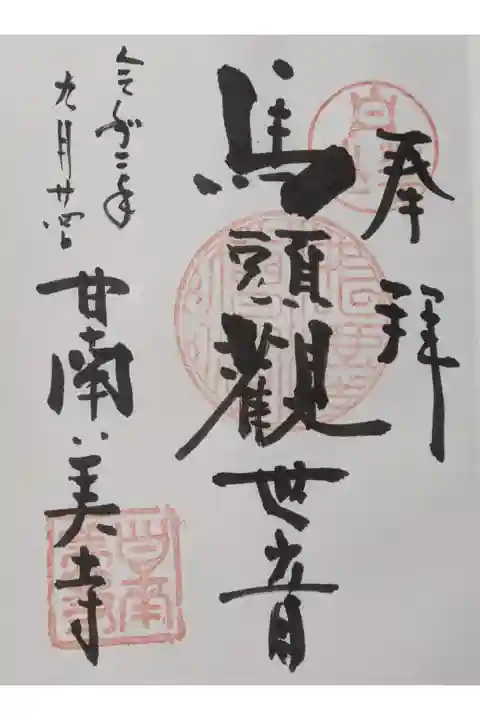 奉拝
馬頭觀世音
令和二年
九月廿四日
甘南美寺